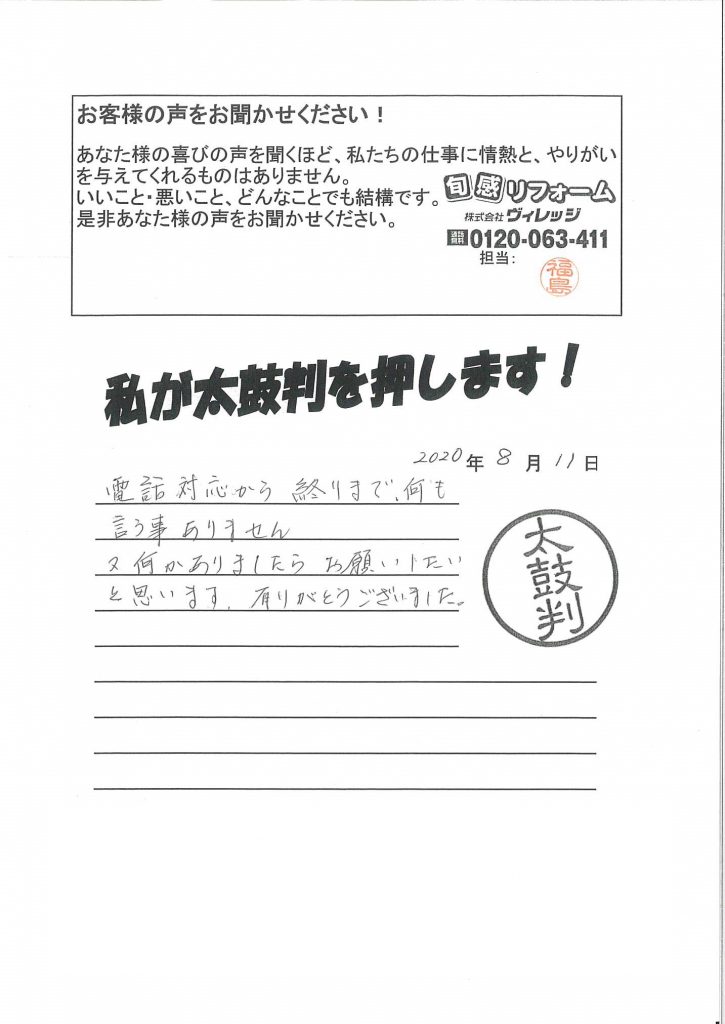 お客様の声をお聞かせください！
あなた様の喜びの声を聞くほど、私たちの仕事に情熱と、やりがい
を与えてくれるものはありません。
いいこと・悪いこと、どんなことでも結構です。
是非あなた様の声をお聞かせください。
旬感リフォーム
株式会社ヴィレッジ
通話無料 0120-063-411
担当：
福島
私が太鼓判を押します！
2020年 8月 11日
電話対応から 終りまで、何も
言う事ありません
又何かありましたら お願いしたい
と思います。有りがとうございました。
太鼓判